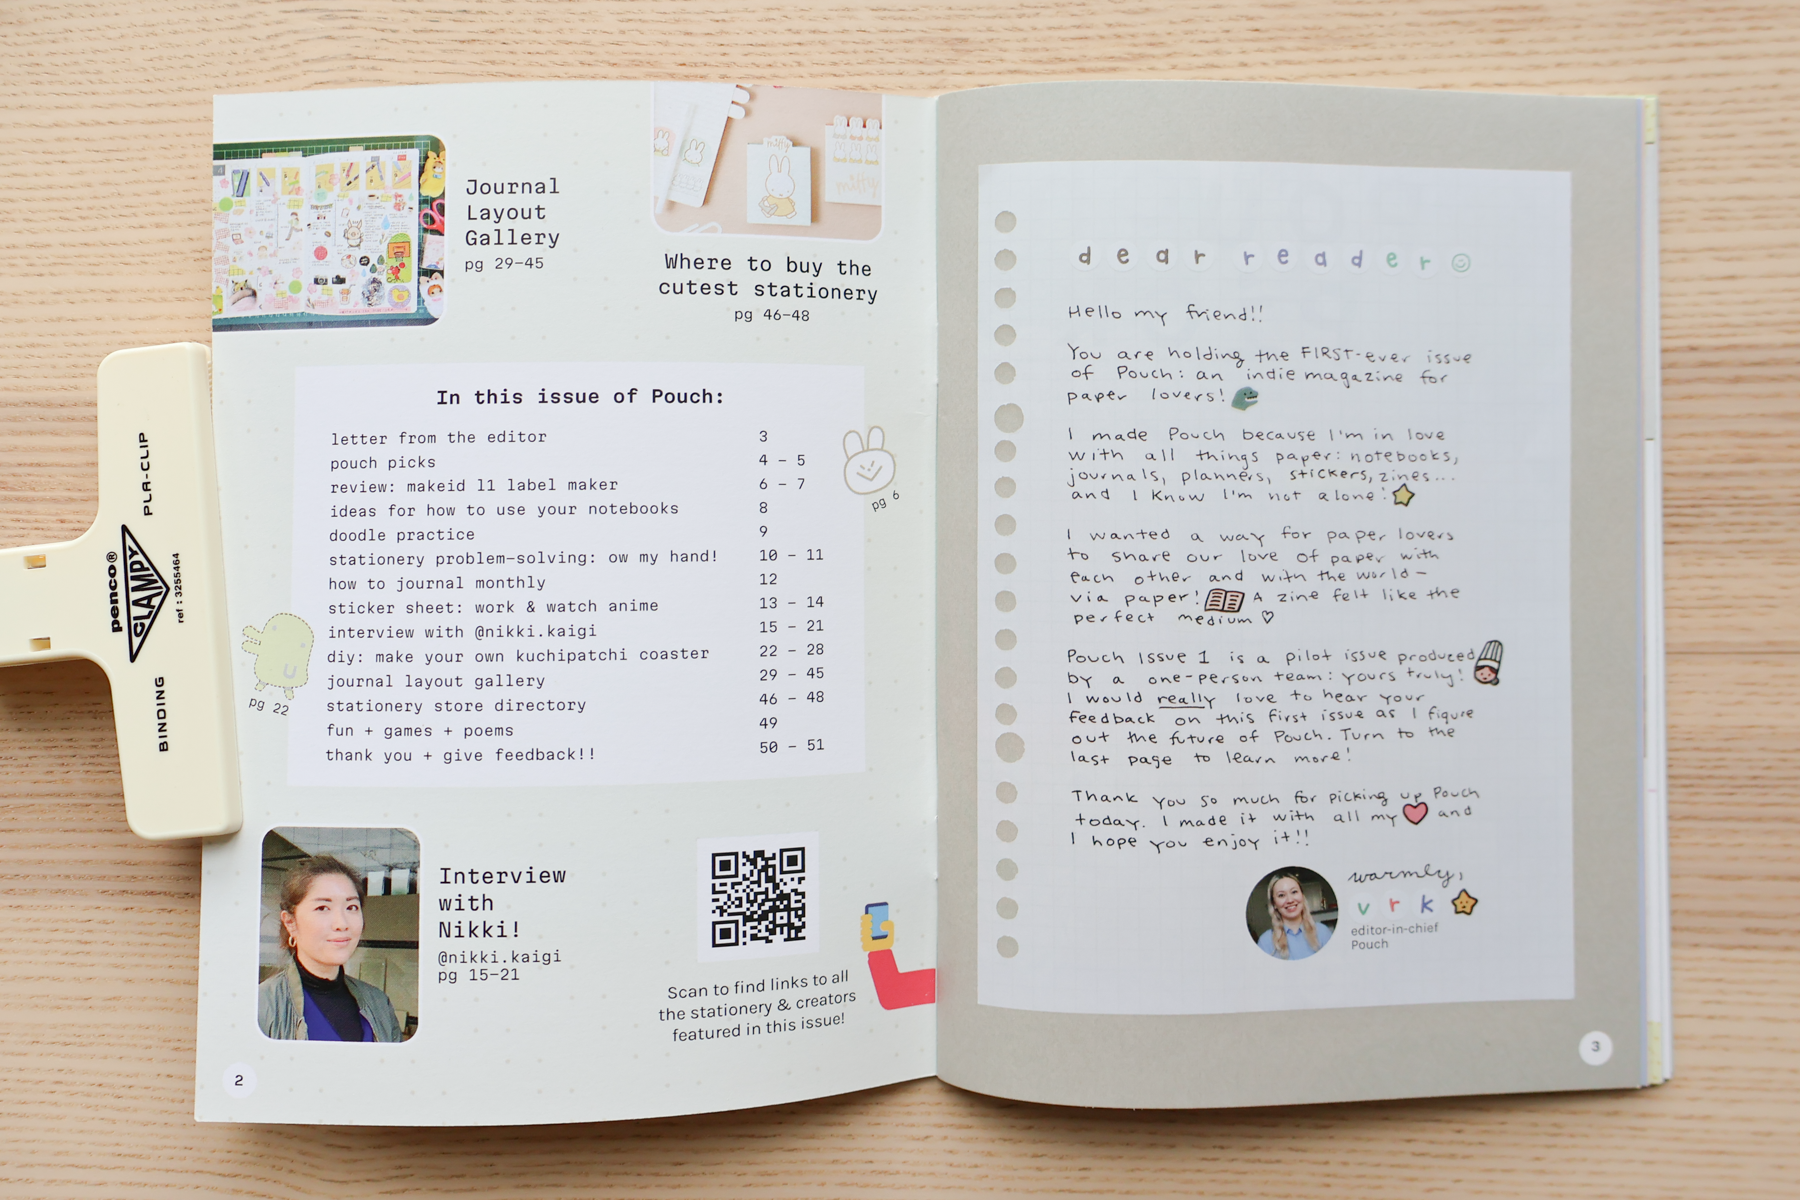 Journal
Layout
Gallery
pg 29-45
miffy
miffy
Where to buy the
cutest stationery
pg 46-48
In this issue of Pouch:
letter from the editor 3
pouch picks 4 - 5
review: makeid l1 label maker 6 - 7
ideas for how to use your notebooks 8
doodle practice 9
stationery problem-solving: ow my hand! 10 - 11
how to journal monthly 12
sticker sheet: work & watch anime 13 - 14
interview with @nikki.kaigi 15 - 21
diy: make your own kuchipatchi coaster 22 - 28
journal layout gallery 29 - 45
stationery store directory 46 - 48
fun + games + poems 49
thank you + give feedback!! 50 - 51
pg 6
pg 22
Interview
with
Nikki!
@nikki.kaigi
pg 15-21
Scan to find links to all
the stationery & creators
featured in this issue!
2
penco®
CLAMPY
ref : 3255464
BINDING PLA-CLIP
dear reader
Hello my friend!!
You are holding the FIRST-ever issue
of Pouch: an indie magazine for
paper lovers!
I made Pouch because I'm in love
with all things paper: notebooks,
journals, planners, stickers, zines...
and I know I'm not alone!
I wanted a way for paper lovers
to share our love of paper with
each other and with the world-
via paper! A zine felt like the
perfect medium ♡
Pouch Issue 1 is a pilot issue produced
by a one-person team: yours truly!
I would really love to hear your
feedback on this first issue as I figure
out the future of Pouch. Turn to the
last page to learn more!
Thank you so much for picking up Pouch
today. I made it with all my and
I hope you enjoy it!!
warmly,
vrk
editor-in-chief
Pouch
3